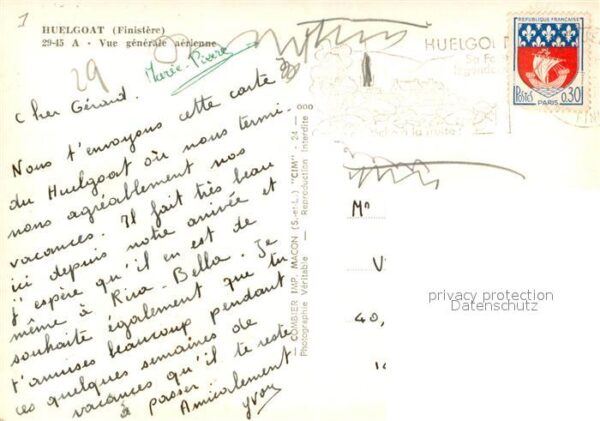 1
HUELGOAT (Finistère)
29-45 A - Vue générale aérienne
29
Marie-Pierre
Cher Gérard.
Nous t'envoyons cette carte
du Huelgoat où nous termi-
nons agréablement nos
vacances. Il fait très beau
ici depuis notre arrivée et
j'espère qu'il en est de
même à Riva-Bella. Je
souhaite également que tu
t'amuses beaucoup pendant
ces quelques semaines de
vacances qu'il te reste
à passer.
Amicalement
Yvon
COMBIER IMP. MACON (S.-et-L.) "CIM" — 24 — 000
Photographie Véritable - Reproduction Interdite
HUELGOAT
Sa Fo
légende
REPUBLIQUE FRANÇAISE
POSTES
0,30
PARIS
Mn
V
40,
privacy protection
Datenschutz